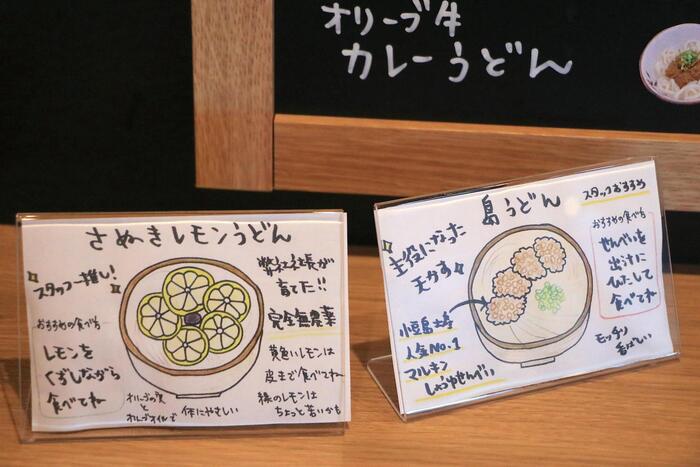 オリーブ牛
カレーうどん
さぬきレモンうどん
スタッフ一推し!
おすすめの食べ方
レモンを
くずしながら
食べてね
弊社社長が
育てた!!
完全無農薬
黄色いレモンは
皮まで食べてね
緑のレモンは
ちょっと苦いかも
オリーブの実
と
オリーブオイルで
体にやさしい
島うどん
スタッフおすすめ
主役になった
天かす
小豆島土産
人気No.1
マルキン
しょうゆせんべい
おすすめの食べ方
せんべいを
出汁に
ひたして
食べてね
モッチリ
香ばしい